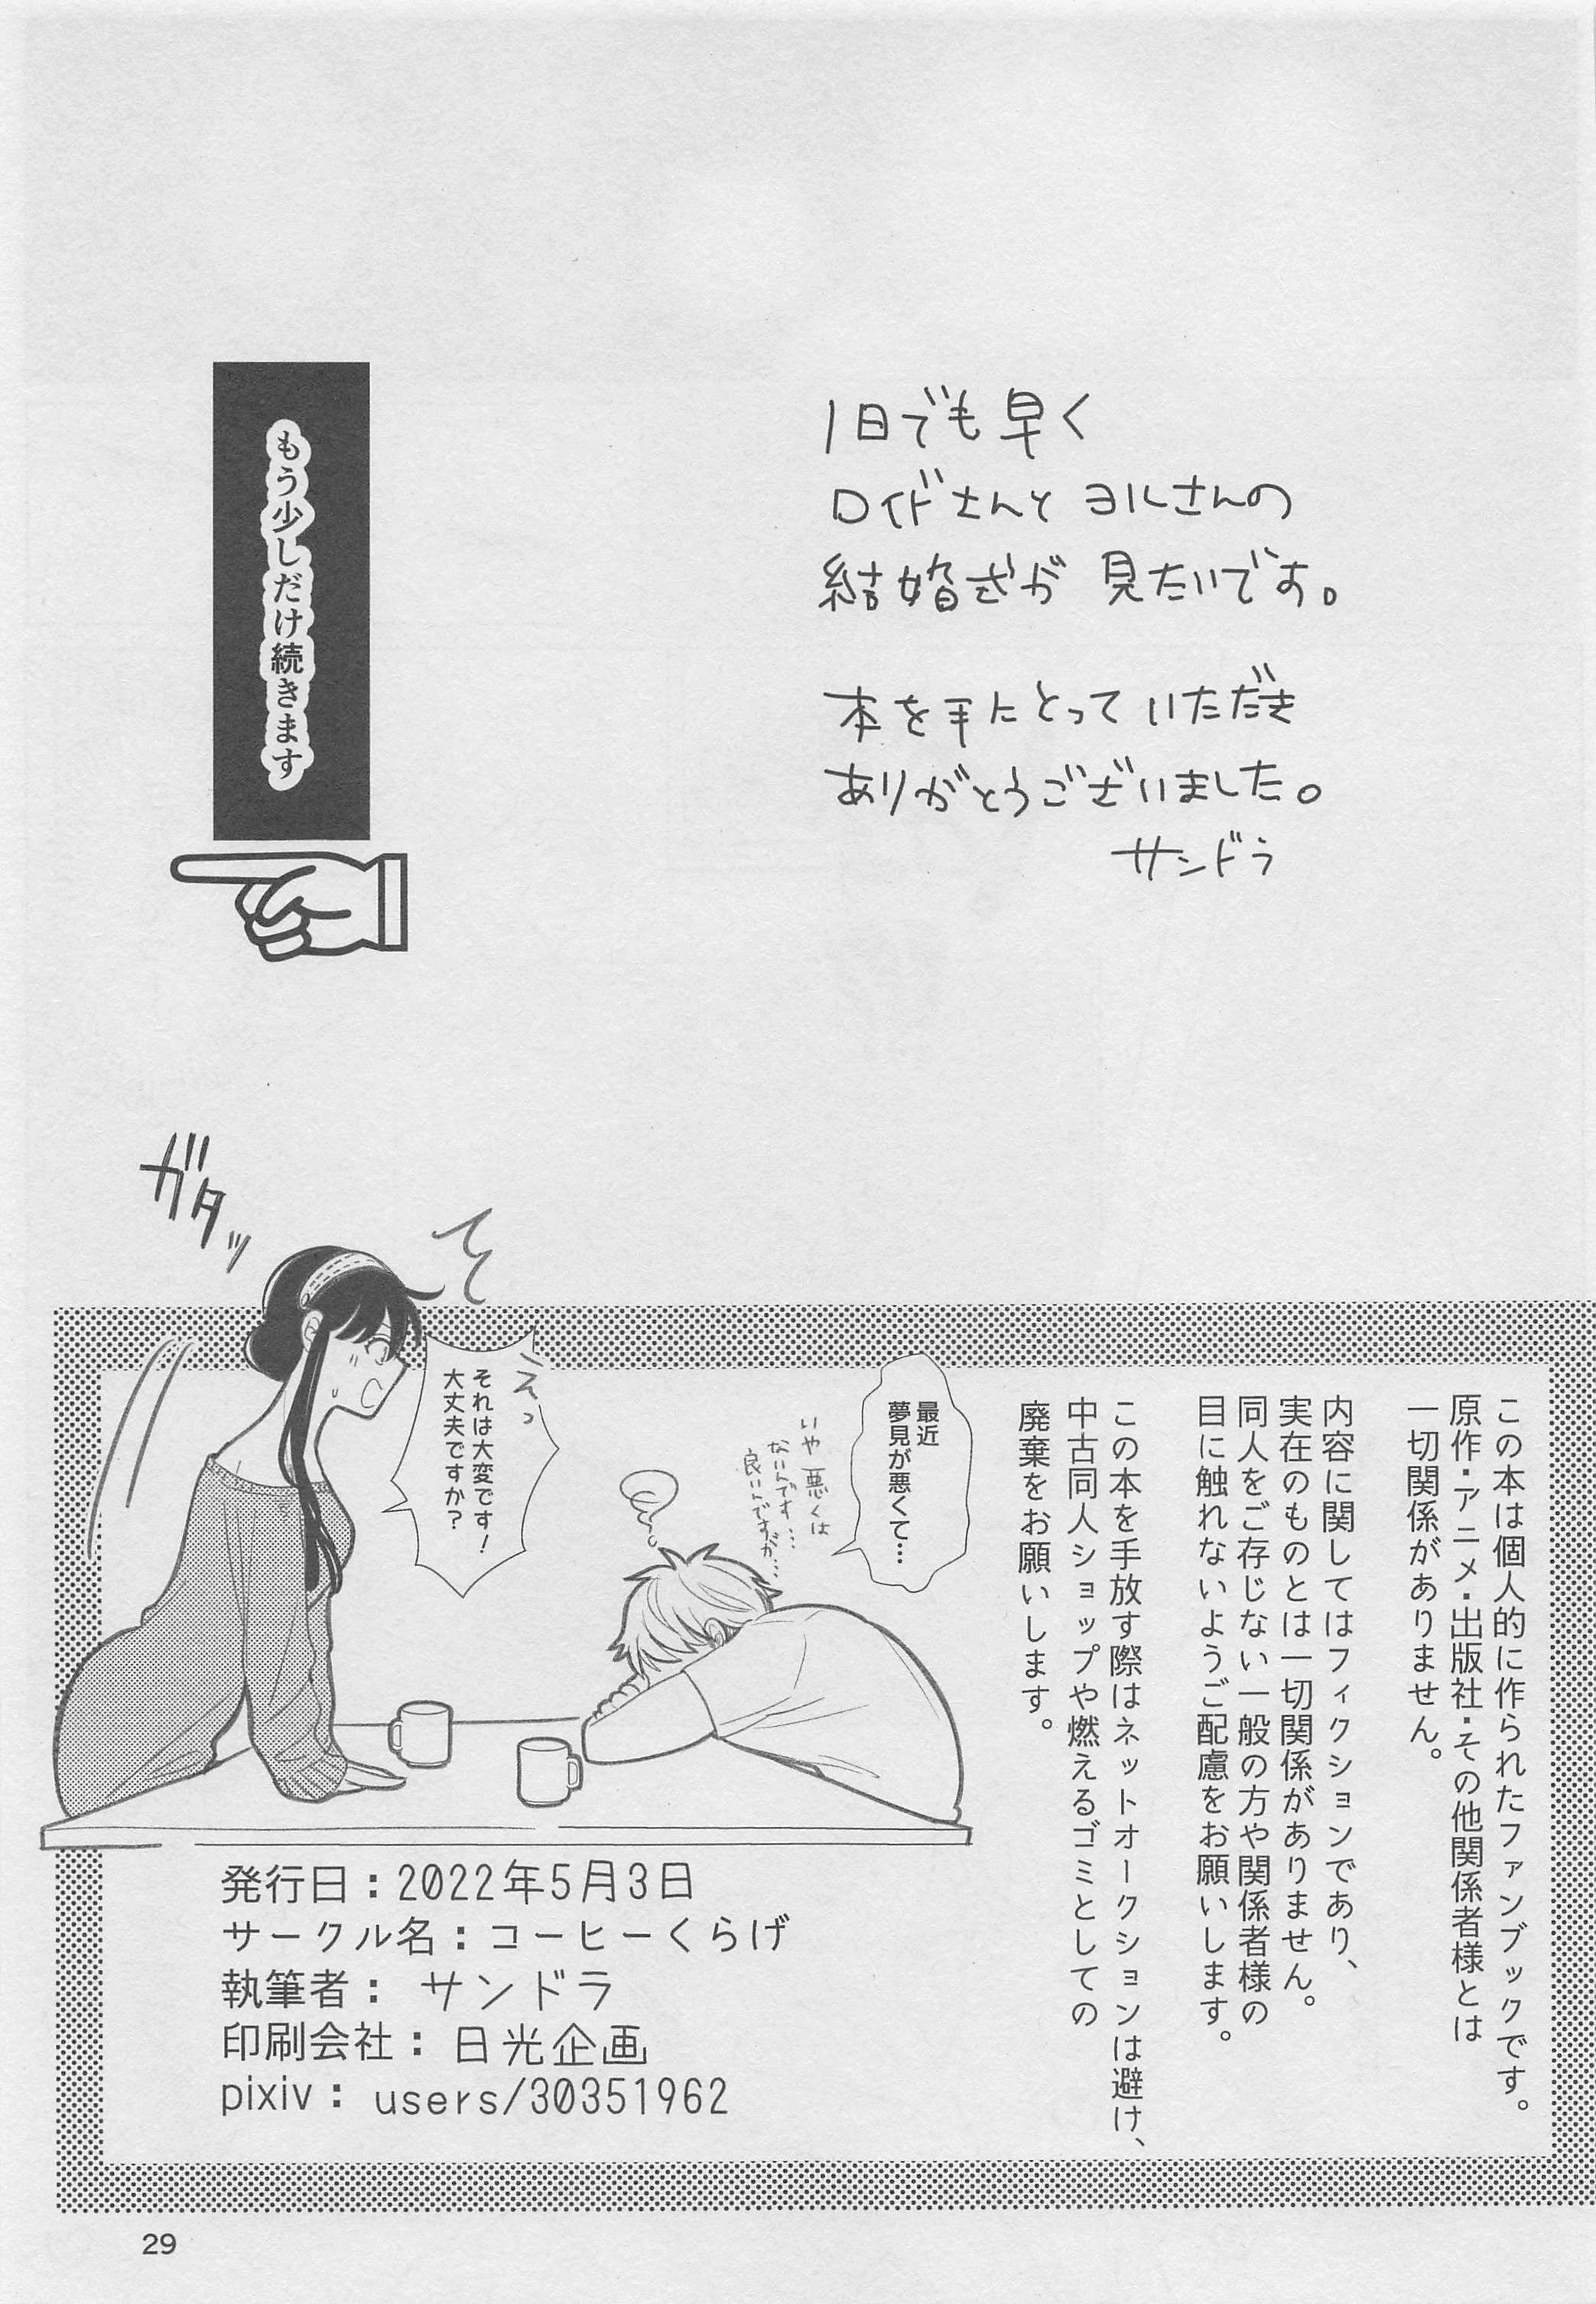 1日でも早く
ロイドさんとヨルさんの
結婚式が見たいです。
本を手にとっていただき
ありがとうございました。
サンドラ
もう少しだけ続きます
この本は個人的に作られたファンブックです。
原作・アニメ・出版社・その他関係者様とは
一切関係がありません。
内容に関してはフィクションであり、
実在のものとは一切関係がありません。
同人をご存じない一般の方や関係者様の
目に触れないようご配慮をお願いします。
この本を手放す際はネットオークションは避け、
中古同人ショップや燃えるゴミとしての
廃棄をお願いします。
最近
夢見が悪くて…
いや悪くは
ないんです…
良いんですが…
えっ
それは大変です!
大丈夫ですか?
ガタッ
発行日:2022年5月3日
サークル名:コーヒーくらげ
執筆者: サンドラ
印刷会社:日光企画
pixiv: users/30351962
29